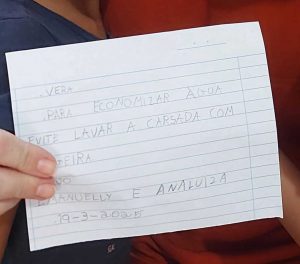 .VERA
.PARA ECONOMIZAR ÁGUA
EVITE LAVAR A CARSADA COM
EIRA
MANUELLY E ANALUIZA
.19-3-2025